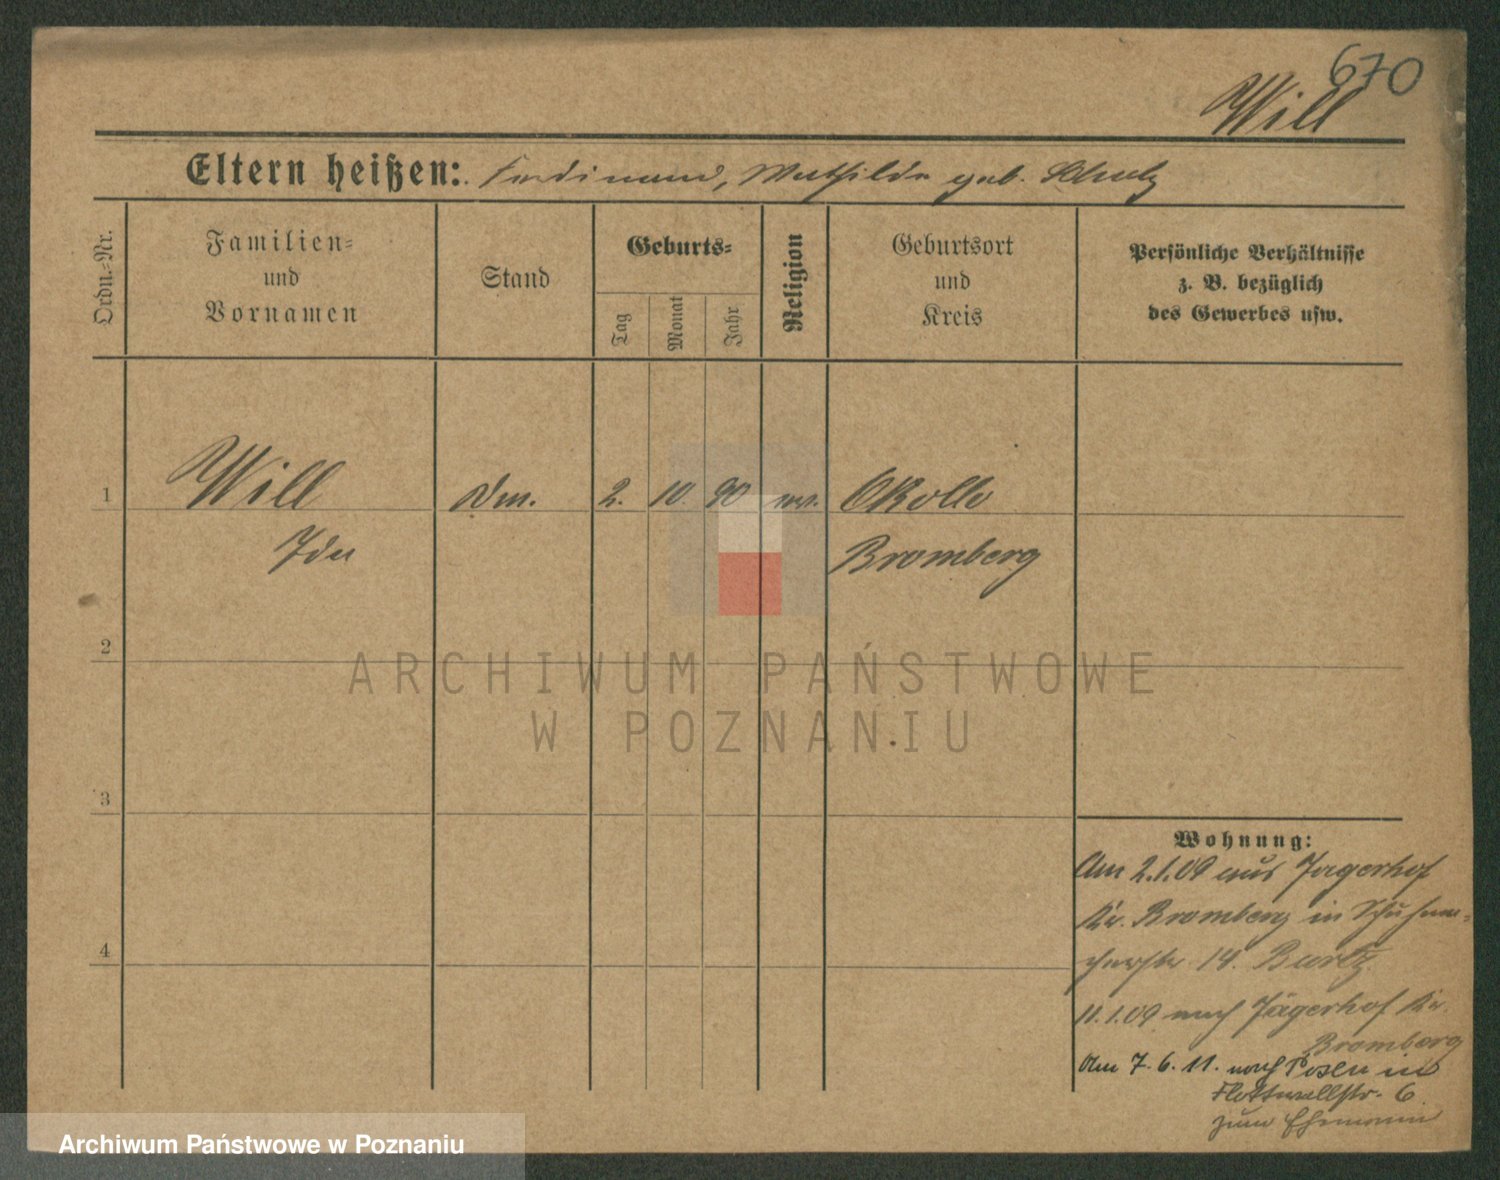 670
Will
Eltern heißen: Ferdinand, Mathilde geb. Schulz
Ordn.-Nr.
Familien-
und
Vornamen
Stand
Geburts-
Tag
Monat
Jahr
Religion
Geburtsort
und
Kreis
Persönliche Verhältnisse
z. B. bezüglich
des Gewerbes usw.
1
Will
2. 10. 90 ev.
Okollo
Ida
Bromberg
2
ARCHIWUM PAŃSTWOWE
W POZNANIU
3
Wohnung:
Am 2.1.09 aus Jagerhof
Kr. Bromberg in Schuhma-
cherstr. 14.
4
11.1.09 nach Jägerhof Kr.
Bromberg
Am 7.6.11. nach Posen in
Flottwellstr. 6.
zum Ehemann
Archiwum Państwowe w Poznaniu